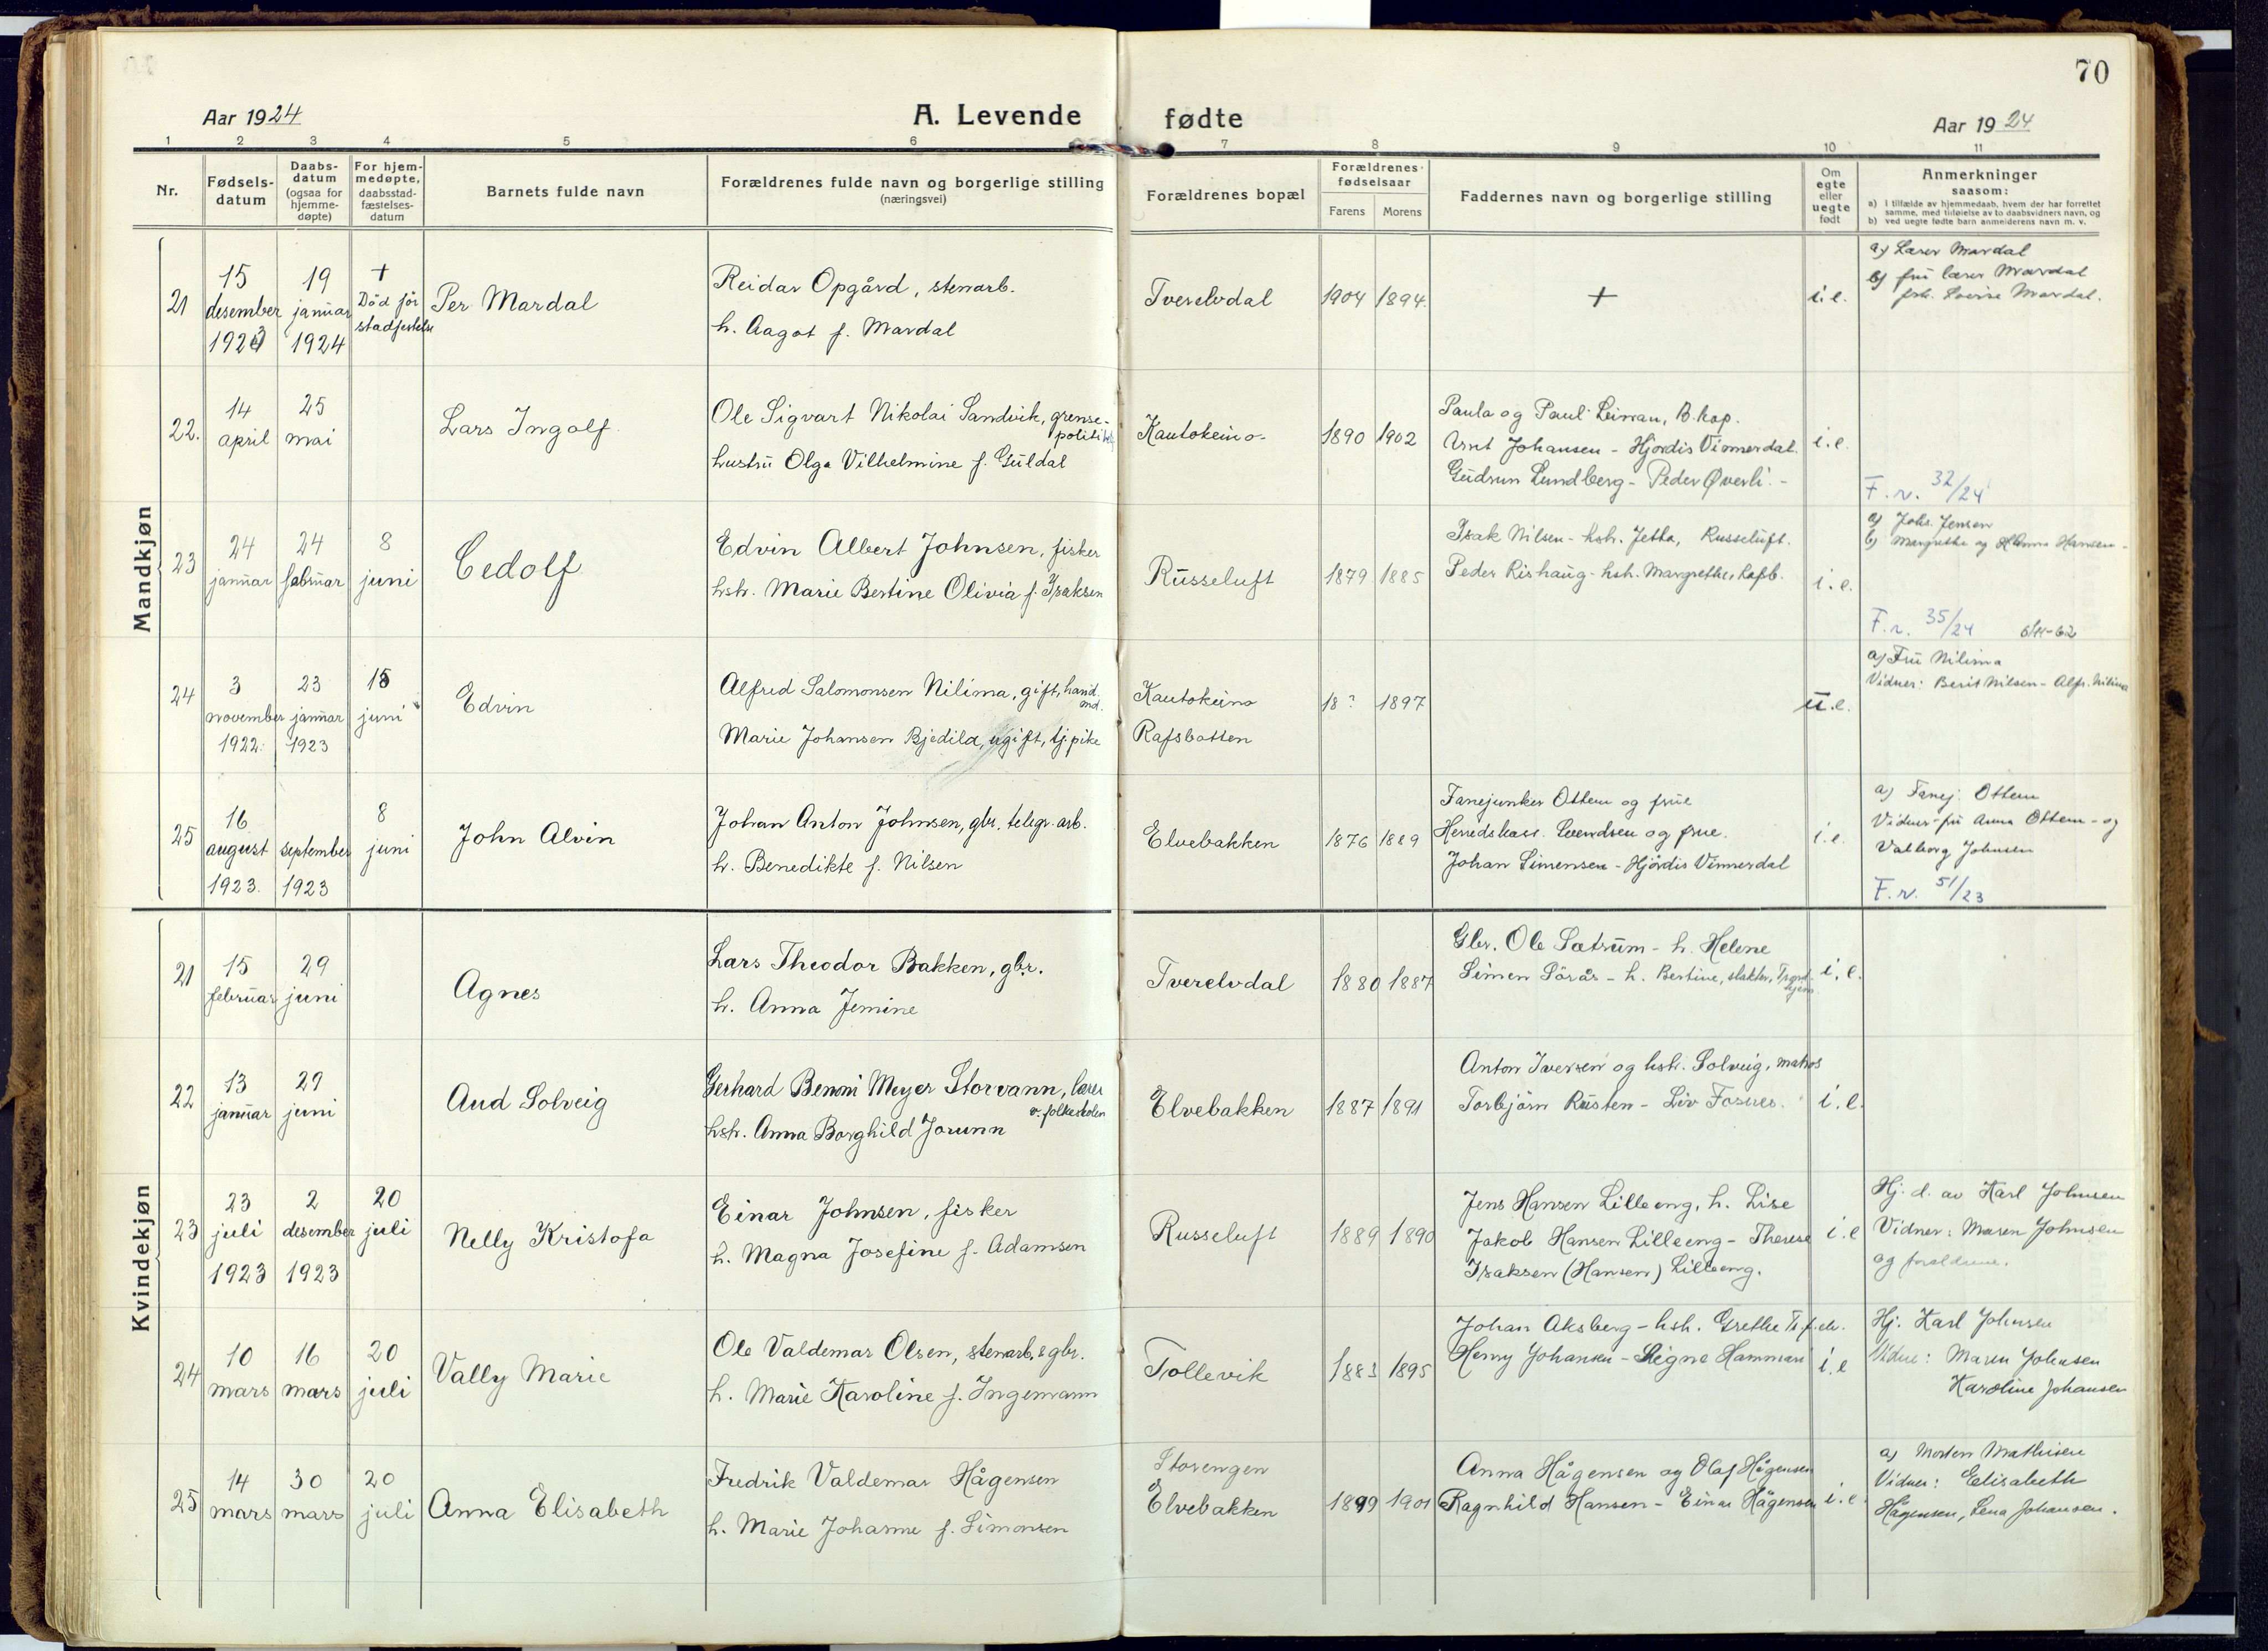 70
Aar 1924
A. Levende fødte
Aar 1924
1 2 3 4 5 6 7 8 9 10 11
Nr.
Fødsels-
datum
Daabs-
datum
(ogsaa for
hjemme-
døpte)
For hjem-
medøpte,
daabsstad-
fæstelses-
datum
Barnets fulde navn
Forældrenes fulde navn og borgerlige stilling
(næringsvei)
Forældrenes bopæl
Forældrenes
fødselsaar
Farens Morens
Faddernes navn og borgerlige stilling
Om
egte
eller
uegte
født
Anmerkninger
saasom:
a) i tilfælde av hjemmedaab, hvem der har forrettet
samme, med tilføielse av to daabsvidners navn, og
b) ved uegte fødte barn anmelderens navn m. v.
Mandkjøn
21
15
desember
1923
19
januar
1924
+
Död för
stadfestelse
Per Mardal
Reidar Opgård, stenarb.
h. Aagot f. Mardal
Tverelvdal
1904 1894.
+
i.e.
a) Lærer Mardal
b) fru lærer Mardal
Mardal.
22.
14
april
25
mai
Lars Ingolf
Ole Sigvart Nikolai Sandvik, grense-
politi
hustru Olga Vilhelmine f. Guldal
Kautokeino
1890 1902
Paula og Paul Leiwan, B.kop.
Arnt Johansen - Hjördis Vinnerdal.
Gudrun Lundberg - Peder Øverli. -
i.e.
F.r. 32/24
23
24
januar
24
februar
8
juni
Cedolf
Edvin Albert Johnsen, fisker
hstr. Marie Bertine Olivia f. Isaksen
Russeluft
1879 1885
Isak Nilsen - hstr. Jetta, Russeluft.
Peder Rishaug - hstr. Margrethe, Rafsb.
i.e.
a) Johs. Jensen
b) Margrethe og Hansen
F.r. 35/24
24
3
november
1922.
23
januar
1923
15
juni
Edvin
Alfred Salomonsen Nilima, gift, hand.
Marie Johansen Bjedila, ugift, tj.pike
Kautokeino
Rafsbotten
18 ? 1897
u.e.
a) Fru Nilima
Vidner: Berit Nilsen - Alfr. Nilima
25
16
august
1923.
september
1923
8
juni
John Alvin
Johan Anton Johnsen, gbr, telegr. arb.
h. Benedikte f. Nilsen
Elvebakken
1876 1889
Fanejunker Ottem og frue
Herredskass. Svendsen og frue.
Johan Simensen - Hjördis Vinnerdal
i.e.
a) Fanej. Ottem
Vidner fru Anna Ottem - og
Valborg Johnsen
F.r. 51/23
Kvindekjøn
21
15
februar
29
juni
Agnes
Lars Theodor Bakken, gbr.
h. Anna Jemine
Tverelvdal
1880 1887
Gbr. Ole Sætrum - h. Helene
Simen Sörås - h. Bertine, slakter,
i.e.
22
13
januar
29
juni
Aud Solveig
Gerhard Benoni Meyer Storvann, lærer
v. folkeskolen
hstr. Anna Borghild Jorunn
Elvebakken
1887 1891
Anton Iversen og hstr. Solveig, matros
Torbjörn Rusten - Liv Fosnes.
i.e.
23
23
juli
1923
2
desember
1923
20
juli
Nelly Kristofa
Einar Johnsen, fisker
h. Magna Josefine f. Adamsen
Russeluft
1889 1890
Jens Hansen Lilleeng, h. Lise
Jakob Hansen Lilleeng - Therese
Isaksen (Hansen) Lilleeng.
i.e
Hj. d. av Karl Johnsen
Vidner: Maren Johnsen
og foreldrene.
24
10
mars
16
mars
20
juli
Vally Marie
Ole Valdemar Olsen, stenarb. & gbr.
h. Marie Karoline f. Ingemann
Tollevik
1883 1895
Johan Aksberg - hstr. Grethe
Henry Johansen - Signe Hammari
i.e
Hj. Karl Johnsen
Vidne: Maren Johnsen
Karoline Johansen
25
14
mars
30
mars
20
juli
Anna Elisabeth
Fredrik Valdemar Hågensen
h. Marie Johanne f. Simonsen
Storengen
Elvebakken
1899 1901
Anna Hågensen og Olaf Hågensen
Ragnhild Hansen - Einar Hågensen
i.e.
a) Morten Mathisen
Vidner: Elisabeth
Hågensen, Lena Johansen.